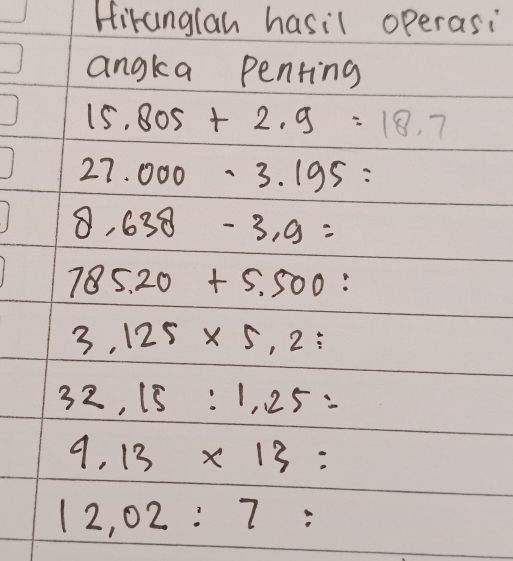 Hitunglah hasil operasi
angka Penting
15.805 + 2.9 = 18.7
27.000 - 3.195 :
8,638 - 3,9 =
785.20 + 5.500 :
3,125 x 5,2 :
32,15 : 1,25 =
9,13 x 13 :
12,02 : 7 :